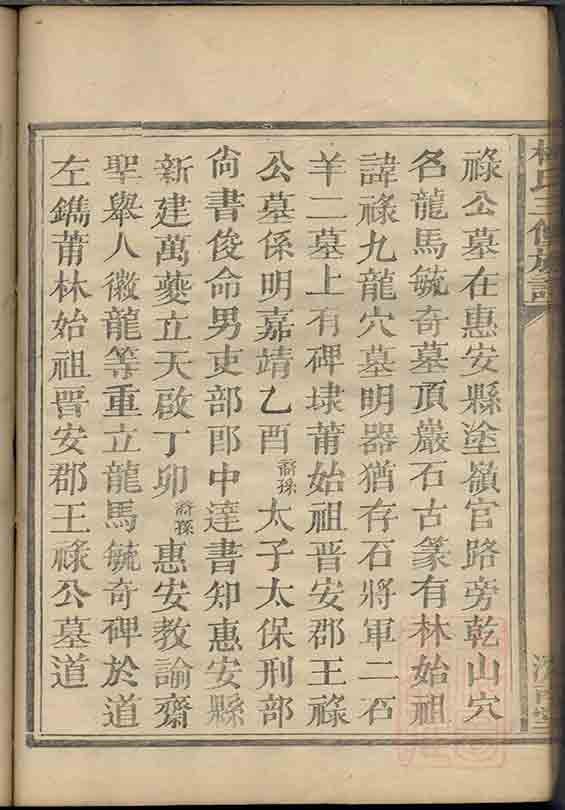 祿公墓在惠安縣塗嶺官路旁乾山穴
名龍馬毓奇墓頂巖石古篆有林始祖
諱祿九龍穴墓明器猶存石將軍二石
羊二墓上有碑埭莆始祖晉安郡王祿
公墓係明嘉靖乙酉裔孫太子太保刑部
尙書俊命男吏部郎中達書知惠安縣
新建萬夔立天啟丁卯裔孫惠安敎諭齋
聖舉人徽龍等重立龍馬毓奇碑於道
左鐫莆林始祖晋安郡王祿公墓道